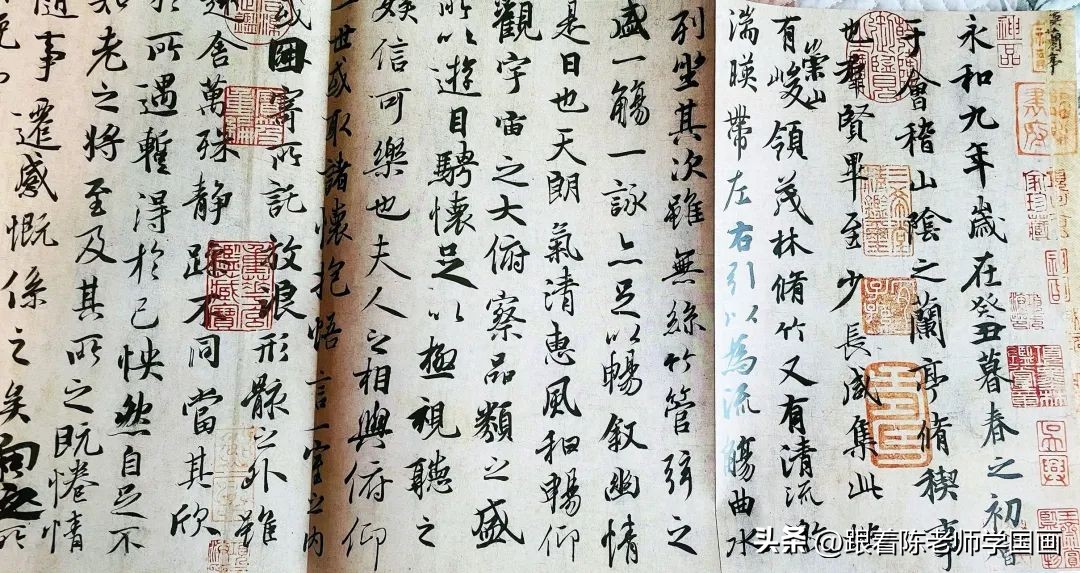 永和九年歲在癸丑暮春之初
于會稽山陰之蘭亭脩稧事
也羣賢畢至少長咸集此
有崇山峻領茂林脩竹又有清流
湍暎帶左右引以為流觴曲水
列坐其次雖無絲竹管弦之
盛一觴一詠亦足以暢敘幽情
是日也天朗氣清惠風和暢仰
觀宇宙之大俯察品類之盛
所以遊目騁懷足以極視聽之
娛信可樂也夫人之相與俯仰
一世或取諸懷抱悟言一室之內
或因寄所託放浪形骸之外雖
趣舍萬殊靜躁不同當其欣
於所遇蹔得於己怏然自足不
知老之將至及其所之既惓情
隨事遷感慨係之矣向之所
神品
头条@跟着陈老师学国画